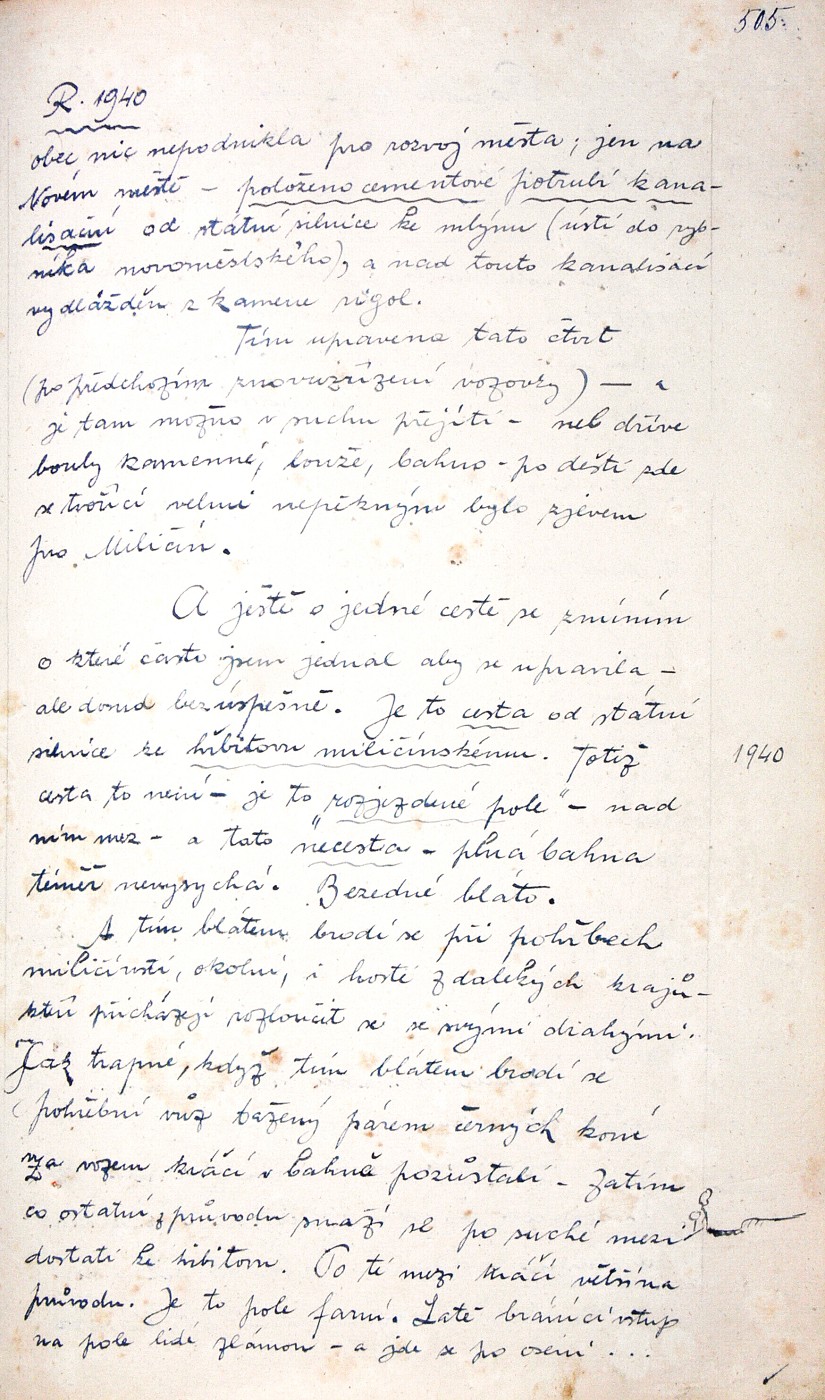 505.
R. 1940
obec nic nepodnikla pro rozvoj města; jen na
Novém městě - položeno cementové potrubí kana-
lisační od státní silnice ke mlýnu (ústí do ryb-
níka novoměstského), a nad touto kanalisací
vydlážděn z kamene rigol.
Tím upravena tato čtvrt
(po předchozím znovuzřízení vozovky) — a
je tam možno v suchu přejíti - neb dříve
bouly kamenné, louže, bahno - po dešti zde
se tvořící velmi nepěkným bylo zjevem
pro Miličín.
A ještě o jedné cestě se zmíním
o které často jsem jednal aby se upravila -
ale dosud bezúspěšně. Je to cesta od státní
silnice ke hřbitovu miličínskému. Totiž
1940
cesta to není - je to "rozježděné pole" - nad
ním mez - a tato "necesta" - plná bahna
téměř nevysychá. Bezedné bláto.
A tím blátem brodí se při pohřbech
miličínští, okolní, i hosté z dalekých krajů -
kteří přicházejí rozloučit se se svými drahými.
Jak trapné, když tím blátem brodí se
pohřební vůz tažený párem černých koní
za vozem kráčí v bahně pozůstalí - Zatím
co ostatní z průvodu snaží se po suché mezi
dostati ke hřbitovu. Po té mezi kráčí většina
průvodu. Je to pole farní. Latě bránící vstup
na pole lidé zlámou - a jde se po osení ...